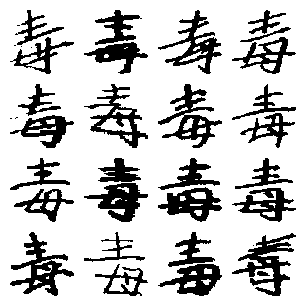 毒毒毒毒
毒毒毒毒
毒毒毒毒
毒毒毒毒